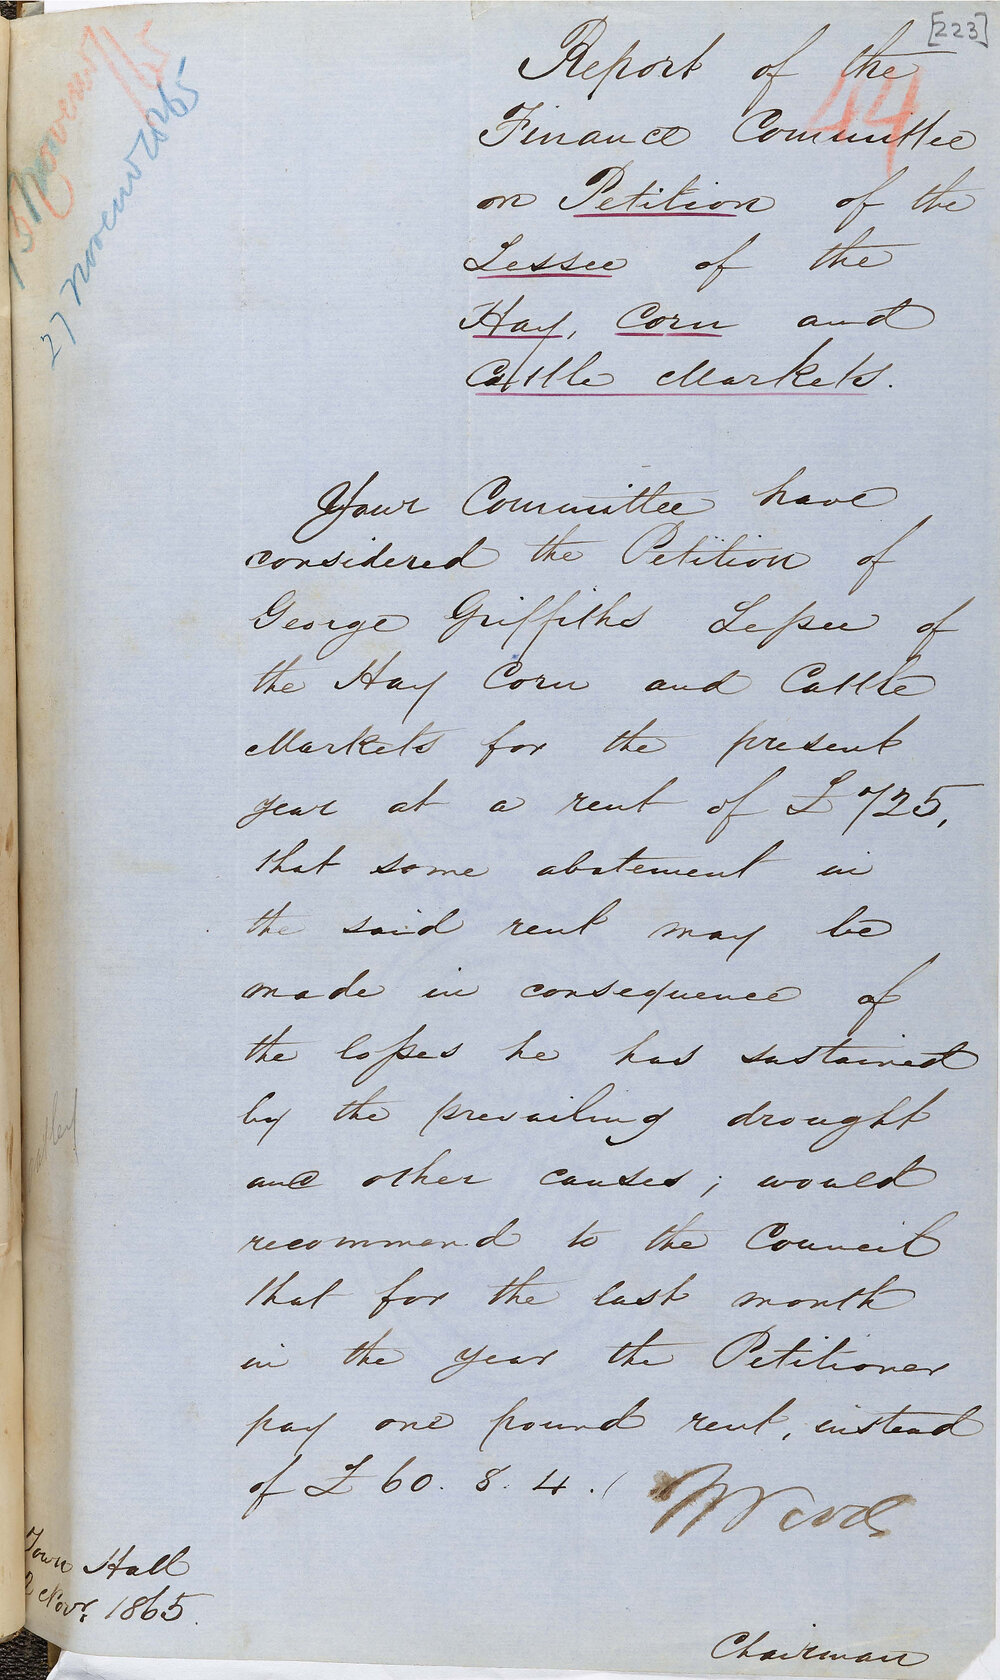 [223]
44
13 Novemr /65
27 Novemr 1865
Report of the
Finance Committee
on Petition of the
Lessee of the
Hay, Corn and
Cattle Markets.
Your Committee have
considered the Petition of
George Griffiths Lessee of
the Hay Corn and Cattle
Markets for the present
year at a rent of £725,
that some abatement in
the said rent may be
made in consequence of
the losses he has sustained
by the prevailing drought
and other causes; would
recommend to the Council
that for the last month
in the year the Petitioner
pay one pound rent, instead
of £60. 8. 4.
Town Hall
Novr. 1865.
Chairman